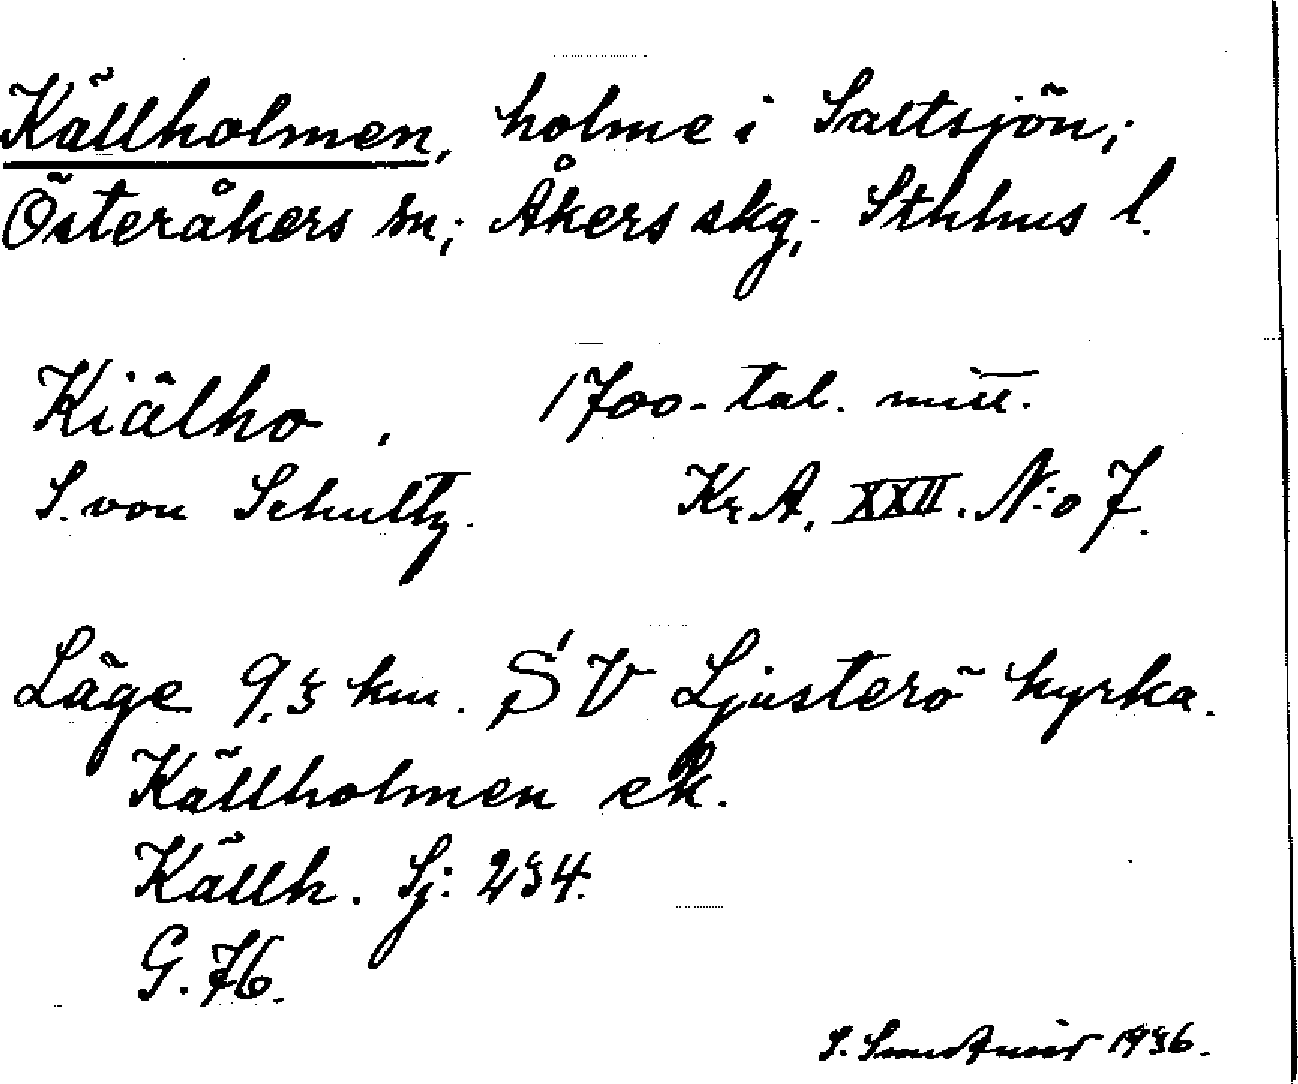 Källholmen, holme i Saltsjön;
Österåkers sn; Åkers skg; Sthlms l.
Kiälho. 1700-tal. mitt.
S. von Schultz. Kr. A. XXII. N:o 7.
Läge 9.3 km. SV Ljusterö kyrka.
Källholmen ek.
Källh. Sj: 234.
G. 76.
S. 1936.